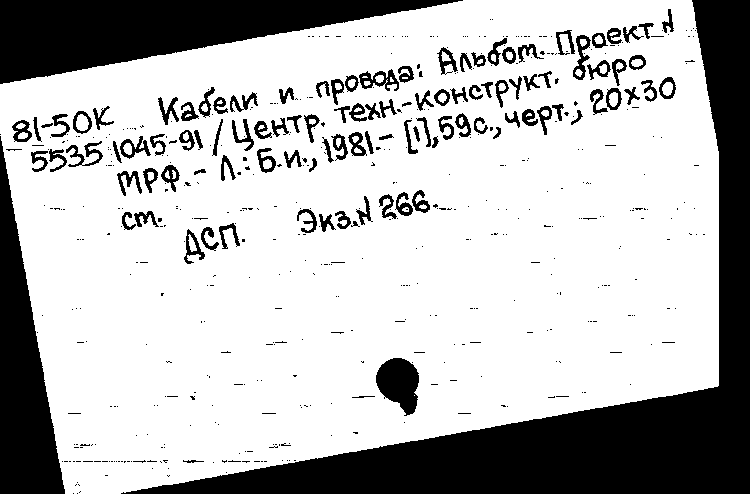 81-50К Кабели и провода: Альбом. Проект N
5535 1045-91 / Центр. техн.-конструкт. бюро
МРФ. - Л.: Б.и., 1981. - [1], 59с., черт.; 20х30
ст.
ДСП. Экз. N 266.